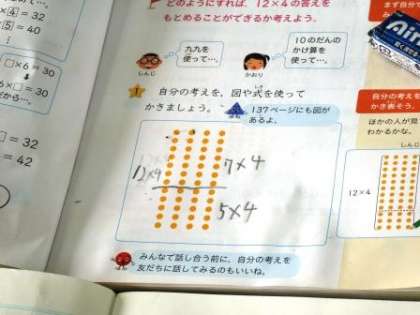 どのようにすれば、12×4の答えを
もとめることができるか考えよう。
九九を
使って…。
しんじ
10のだんの
かけ算を
使って…。
かおり
1 自分の考えを、図や式を使って
かきましょう。
137ページにも図が
あるよ。
12×4
7×4
5×4
みんなで話し合う前に、自分の考えを
友だちに話してみるのもいいね。
×4=32
×5=
×6=30
□×6=
だから…。
□=32
□=40
=24
=42
まず自分で
Air
自分の考えを
かき表そう。
ほかの人が見
わかるかな。
しんじ
12×4